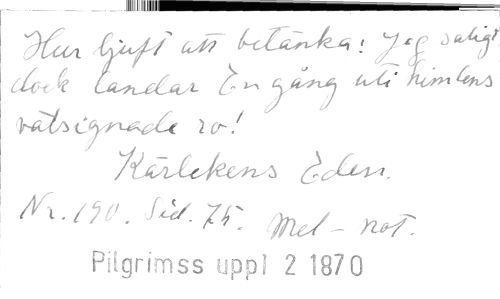 Hur ljuft att betänka! Jag saligt
dock landar En gång uti himlens
välsignade ro!
Kärlekens Eden.
Nr. 190. Sid. 75. Mel-not.
Pilgrimss uppl 2 1870